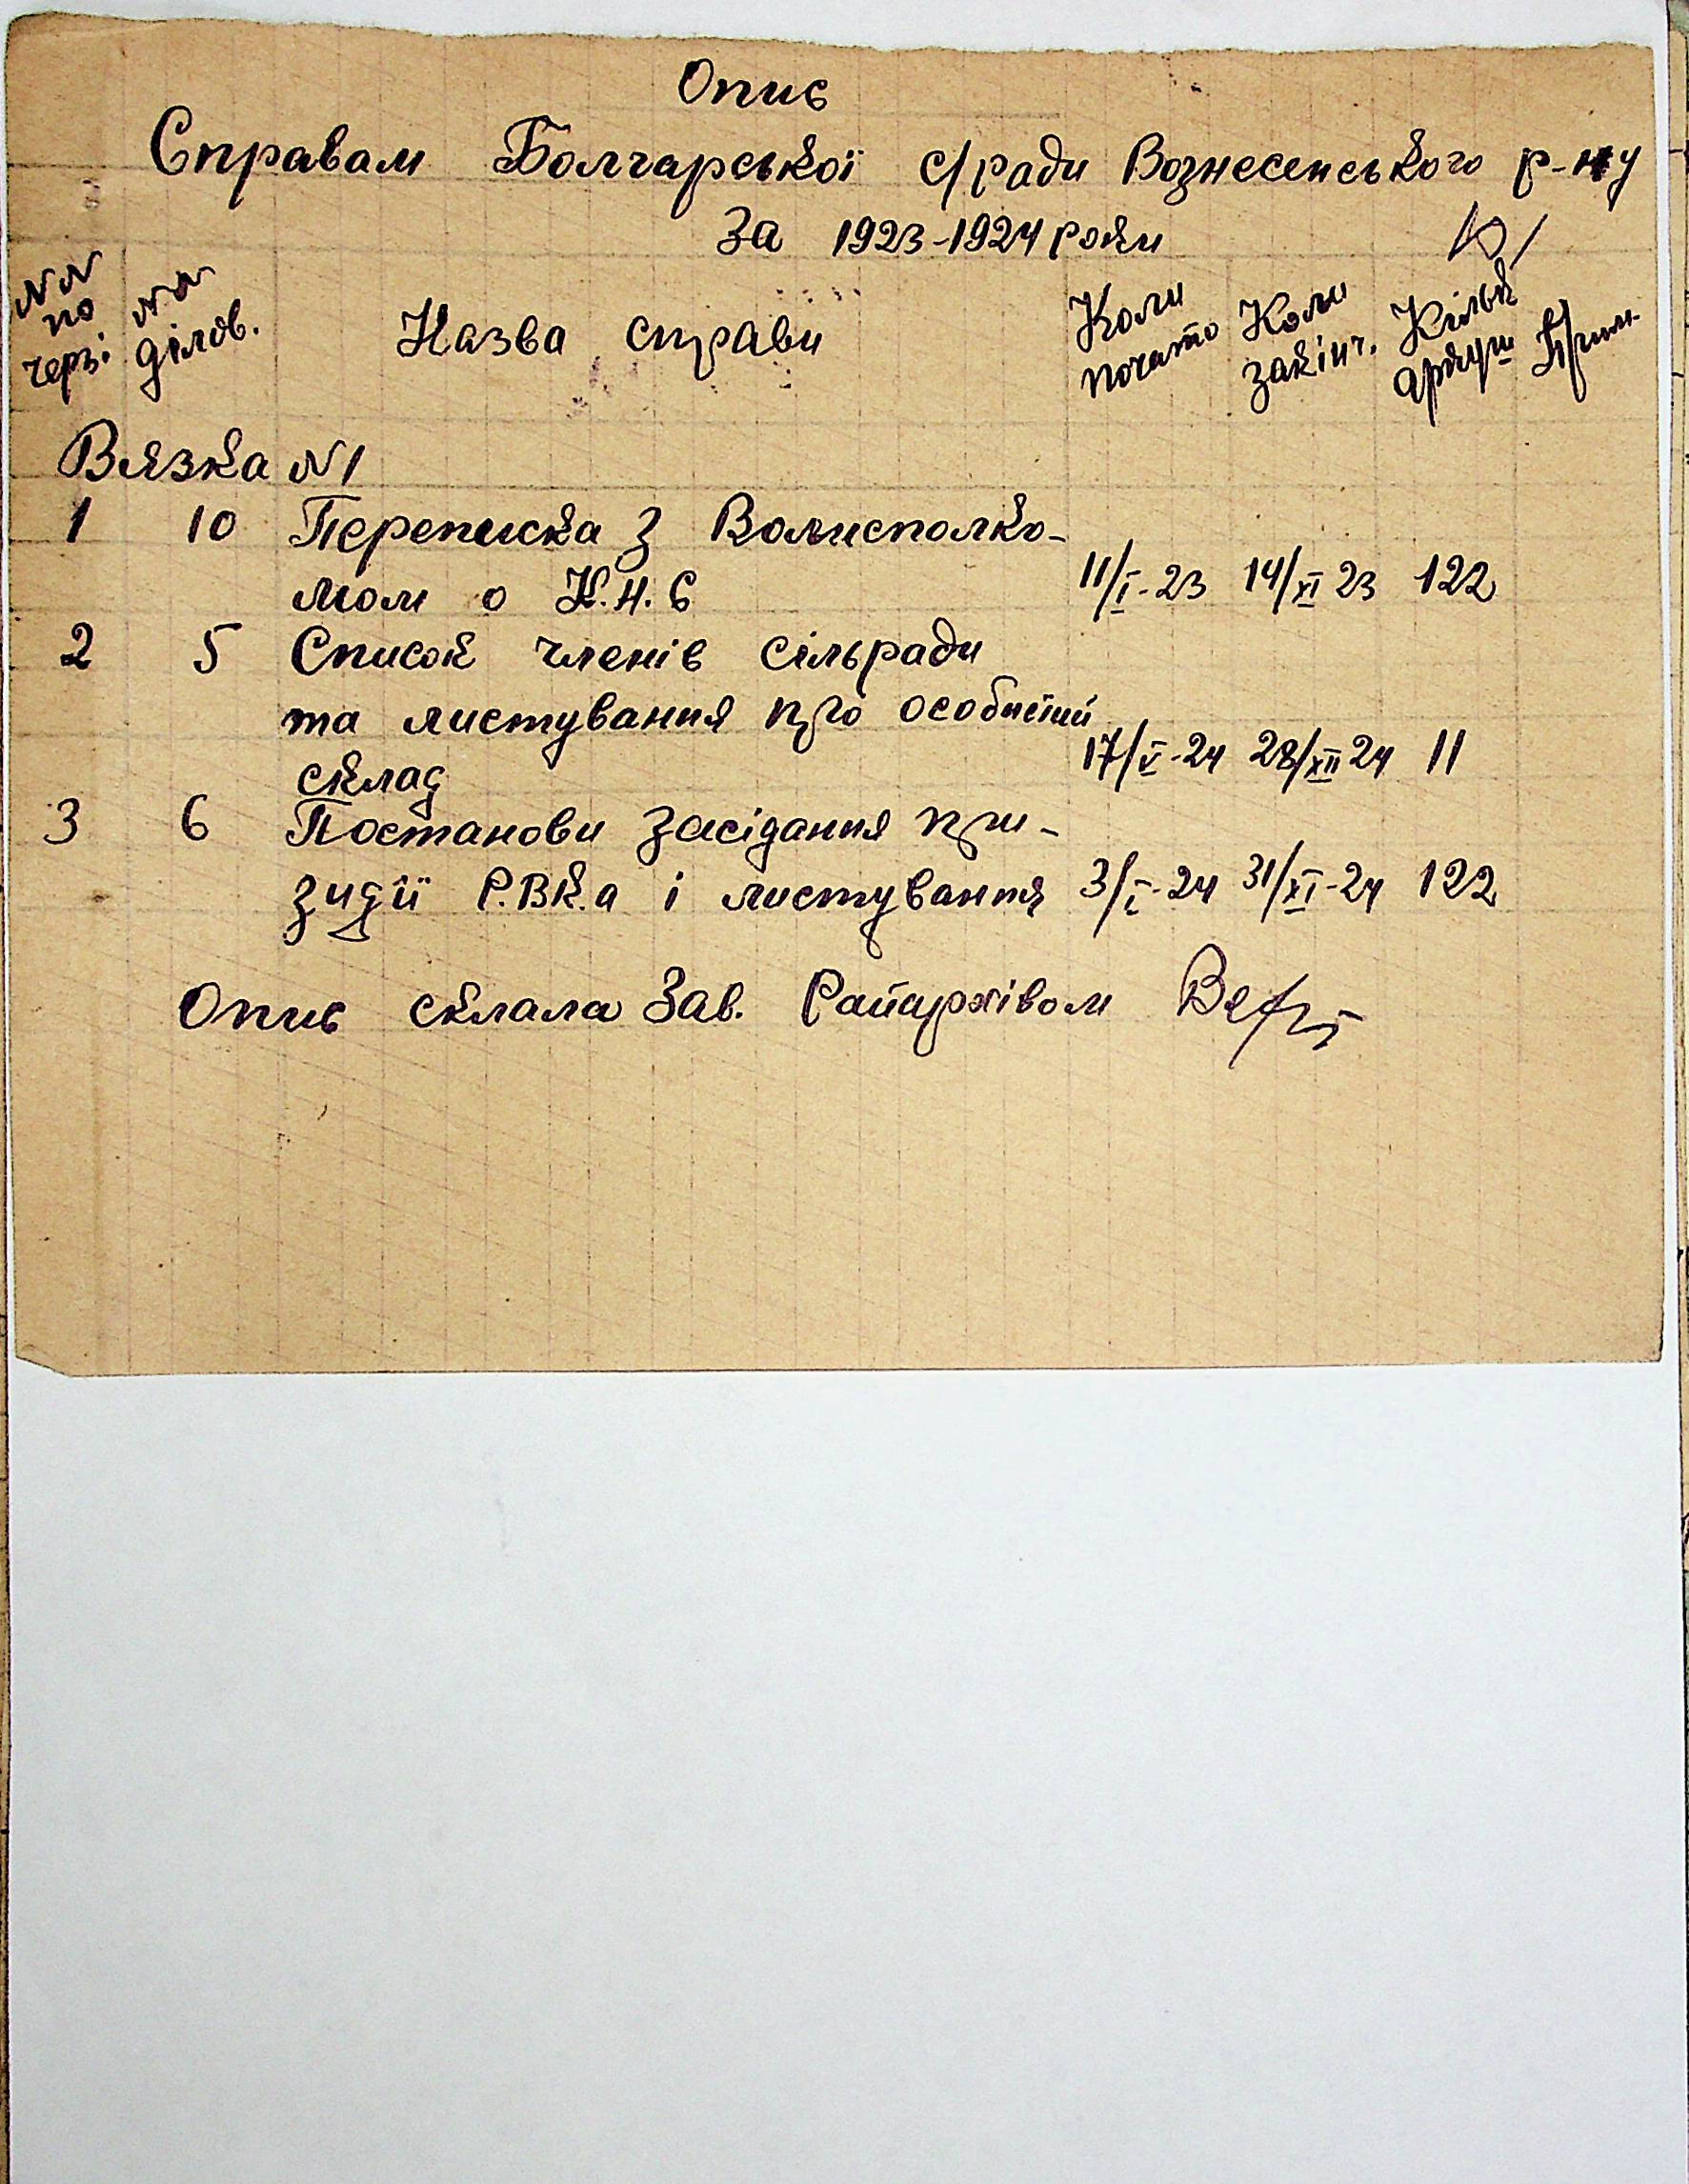 Опис
Справам Болгарської с/ради Вознесенського р-ну
За 1923-1924 роки
NN по черзі
NN ділов.
Назва справи
Коли почато
Коли закінч.
Кільк аркуш
Прим.
Вязка N1
1 10 Переписка з Волисполко-
мом о К.Н.С 11/I-23 14/XI 23 122
2 5 Список членів сільради
та листування про особистий
склад 17/V-24 28/XII 24 11
3 6 Постанови засідання при-
зидії Р.ВК.а і листування 3/I-24 31/XI-24 122
Опис склала Зав. Райархівом